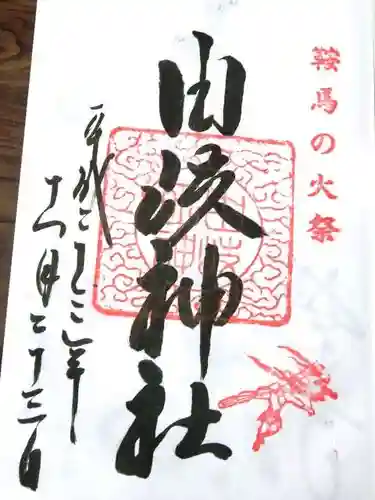 鞍馬の火祭
由岐神社
平成二十三年
十一月二十三日